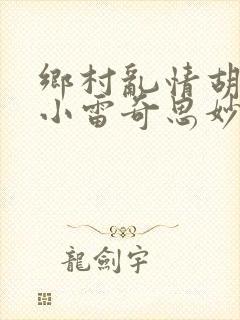 鄉村亂情胡
小雷奇思妙
龍劍宇